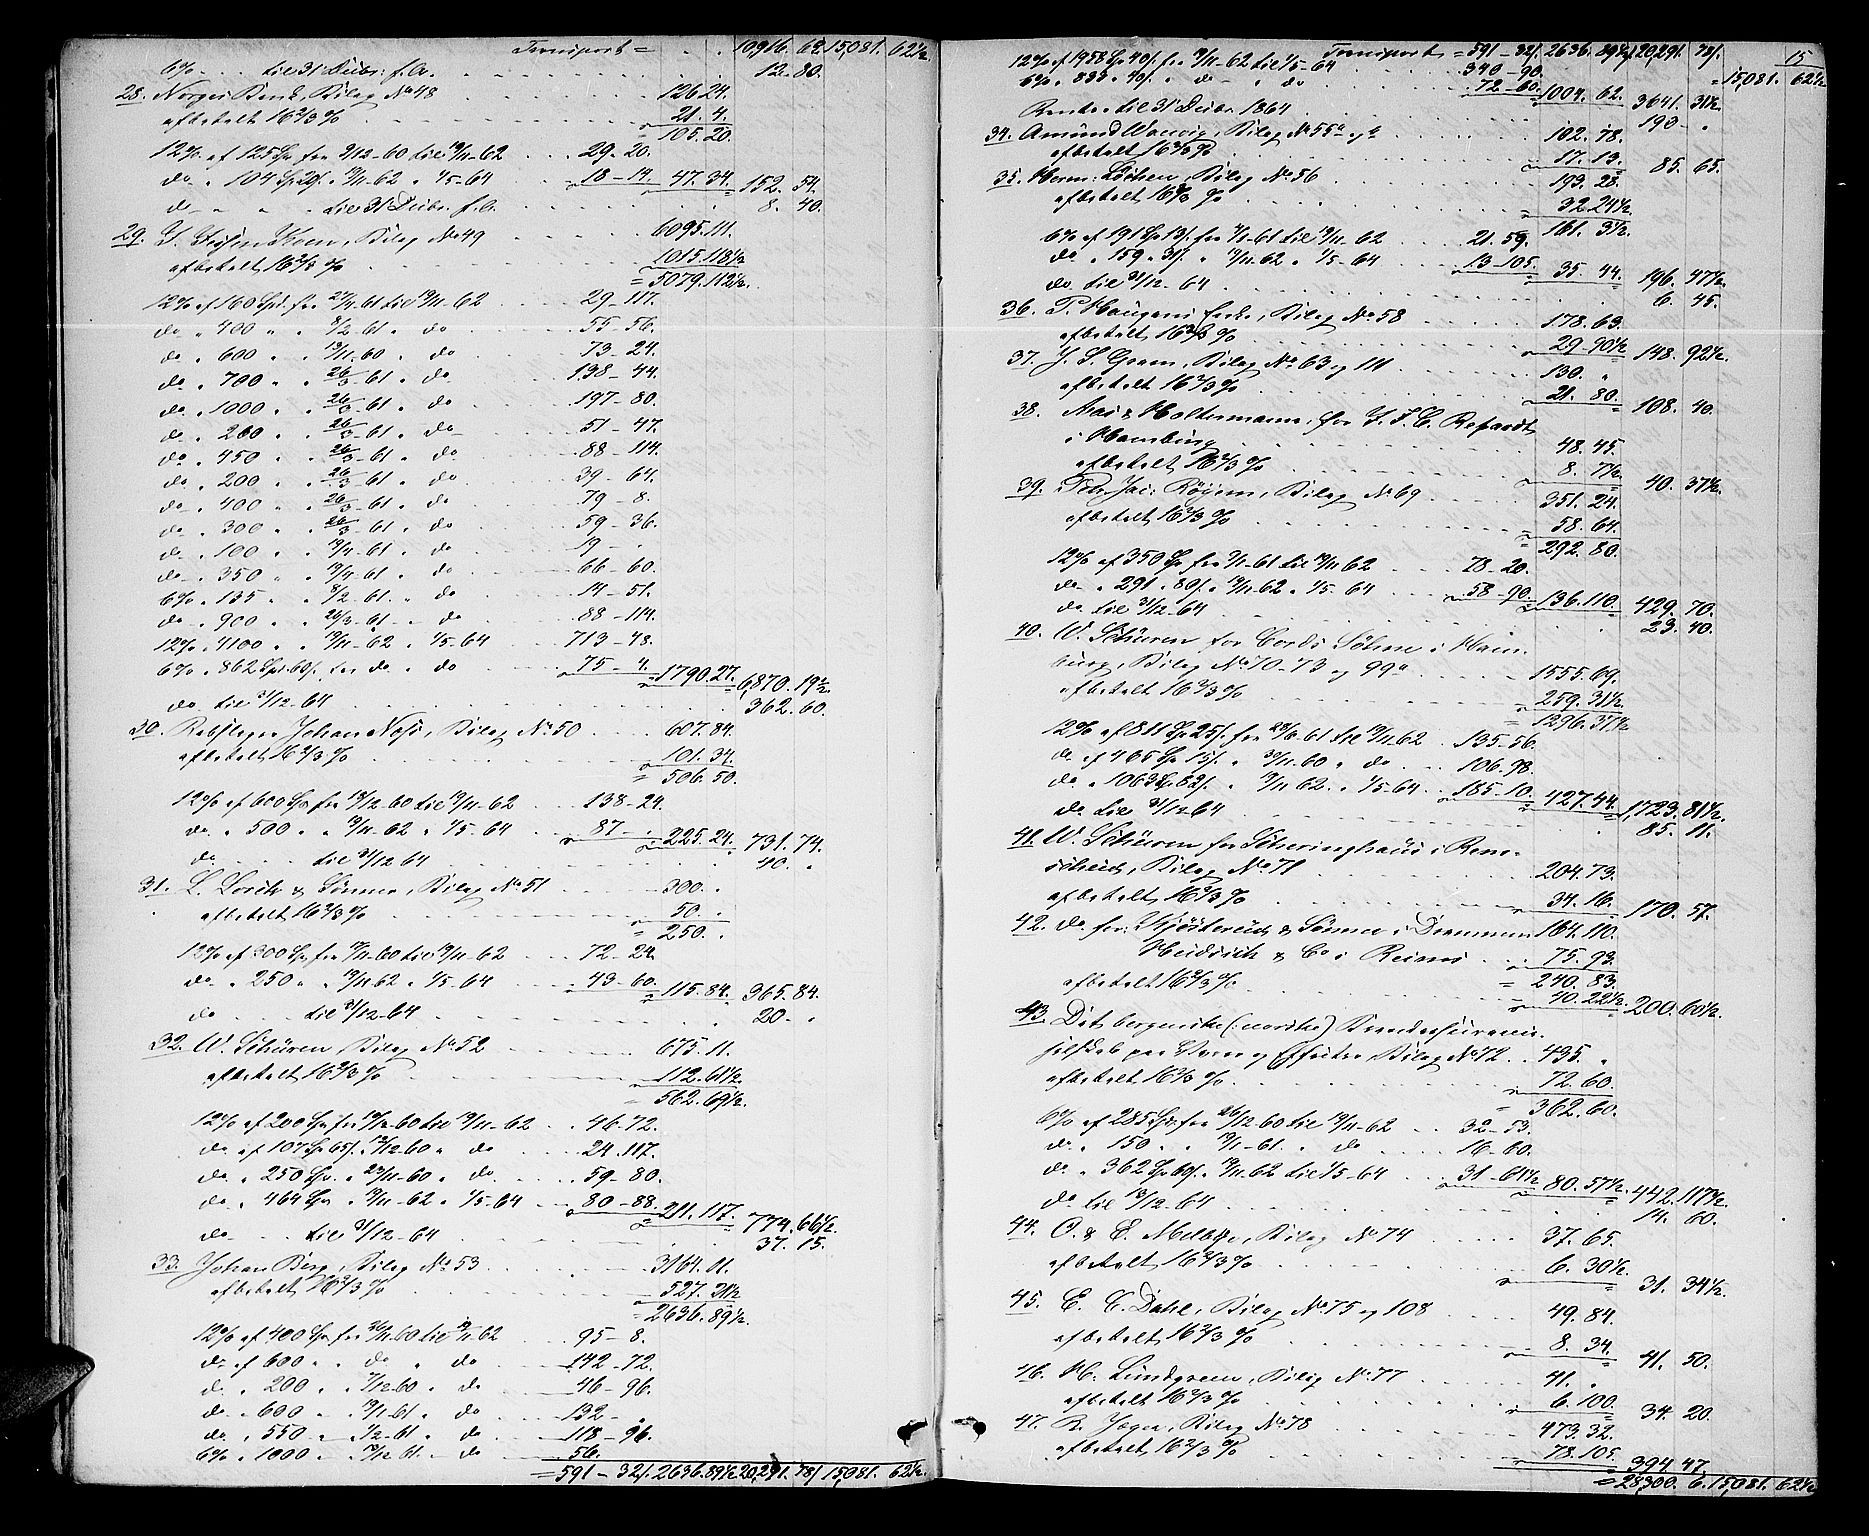 Transport = 10,916. 62. 15,081. 62½
6% til 31 Decbr. f.A. 12. 80.
28. Norges Bank, Bilag No 48 126 24.
afbetalt 16 2/3 % 21. 4.
= 105. 20.
12% af 125 Sp fra 9/12-60 til 19/11-62 29. 20.
do " 104 Sp 20/. " 19/11-62 " 1/5-64 18-14. 47. 34. 152. 54.
do " til 31 Decbr. f.A. 8. 40.
29. Bilag No 49 6095. 111.
afbetalt 16 2/3 % 1015. 118½
= 5079. 112½.
12% af 160 Spd. fra 24/4-61 til 19/11-62 29-117.
do " 400 " " 8/2-61 " do 55-56.
do " 600 " " 19/11-60 " do 73-24.
do " 700 " " 26/3-61 " do 138-44.
do " 1000 " " 26/3-61 " do 197-80.
do " 260 " " 26/3-61 " do 51-47.
do " 450 " " 26/3-61 " do 88-114.
do " 200 " " 26/3-61 " do 39-64.
do " 400 " " 26/3-61 " do 79-8.
do " 300 " " 26/3-61 " do 59-36.
do " 100 " " 19/4-61 " do 19 -
do " 350 " " 19/4-61 " do 66-60.
6% " 135 " " 8/2-61 " do 14-51.
do " 900 " " 26/3-61 " do 88-114.
12% " 4100 " " 19/11-62 " 1/5-64 713-48.
6% " 862 Spd. 60/. fra do " do 75-4. 1790. 27. 6,870. 19½.
do til 31/12-64 362. 60.
30. Rebslager Johan Bilag No 50 607. 84.
afbetalt 16 2/3 % 101. 34.
= 506. 50.
12% af 600 Sp fra 18/12-60 til 19/11-62 138-24.
do " 500 " " 19/11-62 " 1/5-64 87- . 225. 24. 731. 74.
do til 31/12-64 40. "
31. L. Lorck & Sønner, Bilag No 51 300. "
afbetalt 16 2/3 % 50. "
= 250. "
12% af 300 Sp fra 19/11-60 til 19/11-62 72-24.
do " 250 " " 19/11-62 " 1/5-64 43-60. 115. 84. 365. 84.
do til 31/12-64 20. "
32. W. Schüren, Bilag No 52 675. 11.
afbetalt 16 2/3 % 112. 61½.
= 562. 69½.
12% af 200 Sp fra 19/12-60 til 19/11-62 46-72.
do af 107 Sp 65/. 19/12-60 " do 24. 117.
do " 250 Sp. " 29/11-60 " do 59-80.
do " 464 Sp " 19/11-62 " 1/5-64 80-88. 211. 117. 774. 66½.
do til 31/12-64 37. 15.
33. Johan Berg, Bilag No 53 3164. 01.
afbetalt 16 2/3 % 527. 31½
= 2636. 89½.
12% af 400 Sp fra 26/11-60 til 19/11-62 95-8.
do af 600 " " do " do 142-72.
do " 200 " " 7/12-60 " do 46-96.
do " 600 " 19/1-61 " do 132 -
do " 550 " 1/2-61 " do 118-96.
6% " 1000 " 19/12-61 " do 56.
= 591-32/. 2636. 89½ 20,291. 78/ 15,081. 62½.
15
Transport = 591-32/. 2636. 89½ 20,291. 78/. = 15,081. 62½
12% af 1958 Sp 40/. fra 19/11-62 til 1/5-64 340-90.
6% " 833 " 40/. " do " do 72-60. 1004. 62. 3641. 31½.
Renter til 31 Decbr. 1864 190- "
34. Amund Bilag No 55a 102. 78.
afbetalt 16 2/3 % 17. 13. 85. 65.
35. Herm: Løchen, Bilag No 56 193. 28.
afbetalt 16 2/3 % 32. 24½.
161. 3½.
6% af 191 Sp 13/. fra 1/1-61 til 19/11-62 21. 59.
do " 159 " 31/. " 19/11-62 " 1/5-64 13-105. 35. 44. 196. 47½.
do til 31/12-64 6. 45.
36. P. Haugans Enke, Bilag No 58 178. 63.
afbetalt 16 2/3 % 29-90½ 148. 92½.
37. J. S. Bilag No 63 og 111 130. "
afbetalt 16 2/3 % 21. 80. 108. 40.
38. Mai & Holtermann, for J. F. C. Refardt
i Hamburg 48. 45.
afbetalt 16 2/3 % 8. 7½ 40. 37½.
39. Petr Jac: Røgen, Bilag No 69 351. 24.
afbetalt 16 2/3 % 58. 64.
= 292. 80.
12% af 350 Sp fra 9/1-61 til 19/11-62 78-20.
do " 291 " 80/. " 19/11-62 " 1/5-64 58-90. 136. 110. 429. 70.
do til 31/12-64 23. 40.
40. W. Schüren for Cords Söhne i Ham-
burg, Bilag No 70-73 og 99a 1555. 69.
afbetalt 16 2/3 % 259. 31½
= 1296. 37½
12% af 811 Sp 25/. fra 28/6-61 til 19/11-62 135-56.
do af 465 Sp 15/. " 30/11-60 " do 106. 98.
do " 1063 Sp 82/. " 19/11-62 " 1/5-64 185-10. 427. 44. 1,723. 81½.
do til 31/12-64 85. 11.
41. W. Schüren for Scheringhaus i Rem-
scheid, Bilag No 71 204. 73.
afbetalt 16 2/3 % 34. 16. 170. 57.
42. do for: & Sønner i Drammen 164. 110.
Heidsick & Co i Reims 75. 93.
= 240. 83.
afbetalt 16 2/3 % 40. 22½. 200. 60½.
43. Det bergenske (: norske) Brandassurance
selskab paa Varer og Effecter Bilag No 72 435. "
afbetalt 16 2/3 % 72. 60.
= 362. 60.
6% af 285 Sp fra 26/12-60 til 19/11-62 32-53.
do " 150 " " 19/1-61 " do 16-60.
do " 362 Sp 60/. " 19/11-62 til 1/5-64 31-61½ 80. 57½. 442. 117½.
do til 13/12-64 14. 60.
44. O. & E. Melbye, Bilag No 74 37. 65.
afbetalt 16 2/3 % 6. 30½. 31. 34½.
45. E. C. Dahl, Bilag No 75 og 108 49. 84.
afbetalt 16 2/3 % 8. 34. 41. 50.
46. H. Lundgren, Bilag No 77 41. "
afbetalt 16 2/3 % 6. 100. 34. 20.
47. R. Jæger, Bilag No 78 473. 32.
afbetalt 16 2/3 % 78. 105. 394 47.
= 28,300. 6. 15,081. 62½